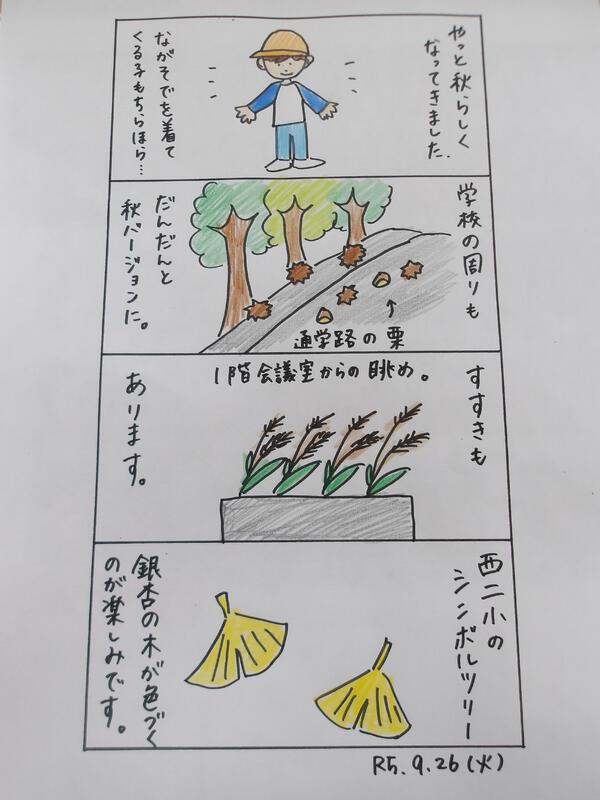 やっと秋らしく
なってきました.
ながそでを着て
くる子もちらほら…
学校の周りも
だんだんと
秋バージョンに。
通学路の栗
1階会議室からの眺め。
すすきも
あります。
西二小の
シンボルツリー
銀杏の木が色づく
のが楽しみです。
R5.9.26(火)